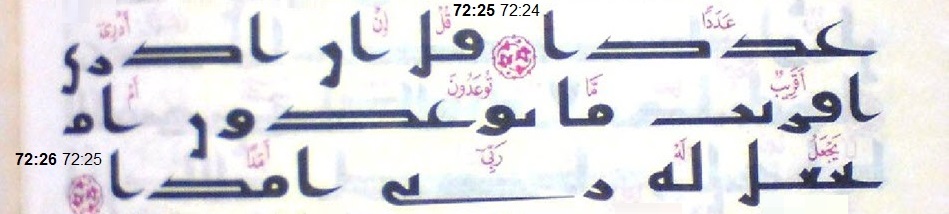 72:25 72:24
عَدَدًا قُلْ إِنْ أَدْرِىٓ
عددا قل ان ادرى
أَقَرِيبٌ مَّا تُوعَدُونَ أَمْ
اقريب ما توعدون ام
يَجْعَلُ لَهُۥ رَبِّىٓ أَمَدًا
يجعل له ربى امدا
72:26 72:25